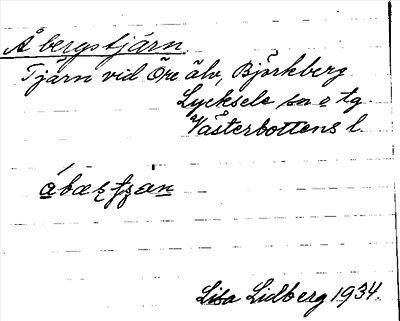 Åbergstjärn
Tjärn vid Öre älv, Björkberg
Lycksele sn o tg.
Västerbottens l.
Lisa Lidberg 1934.